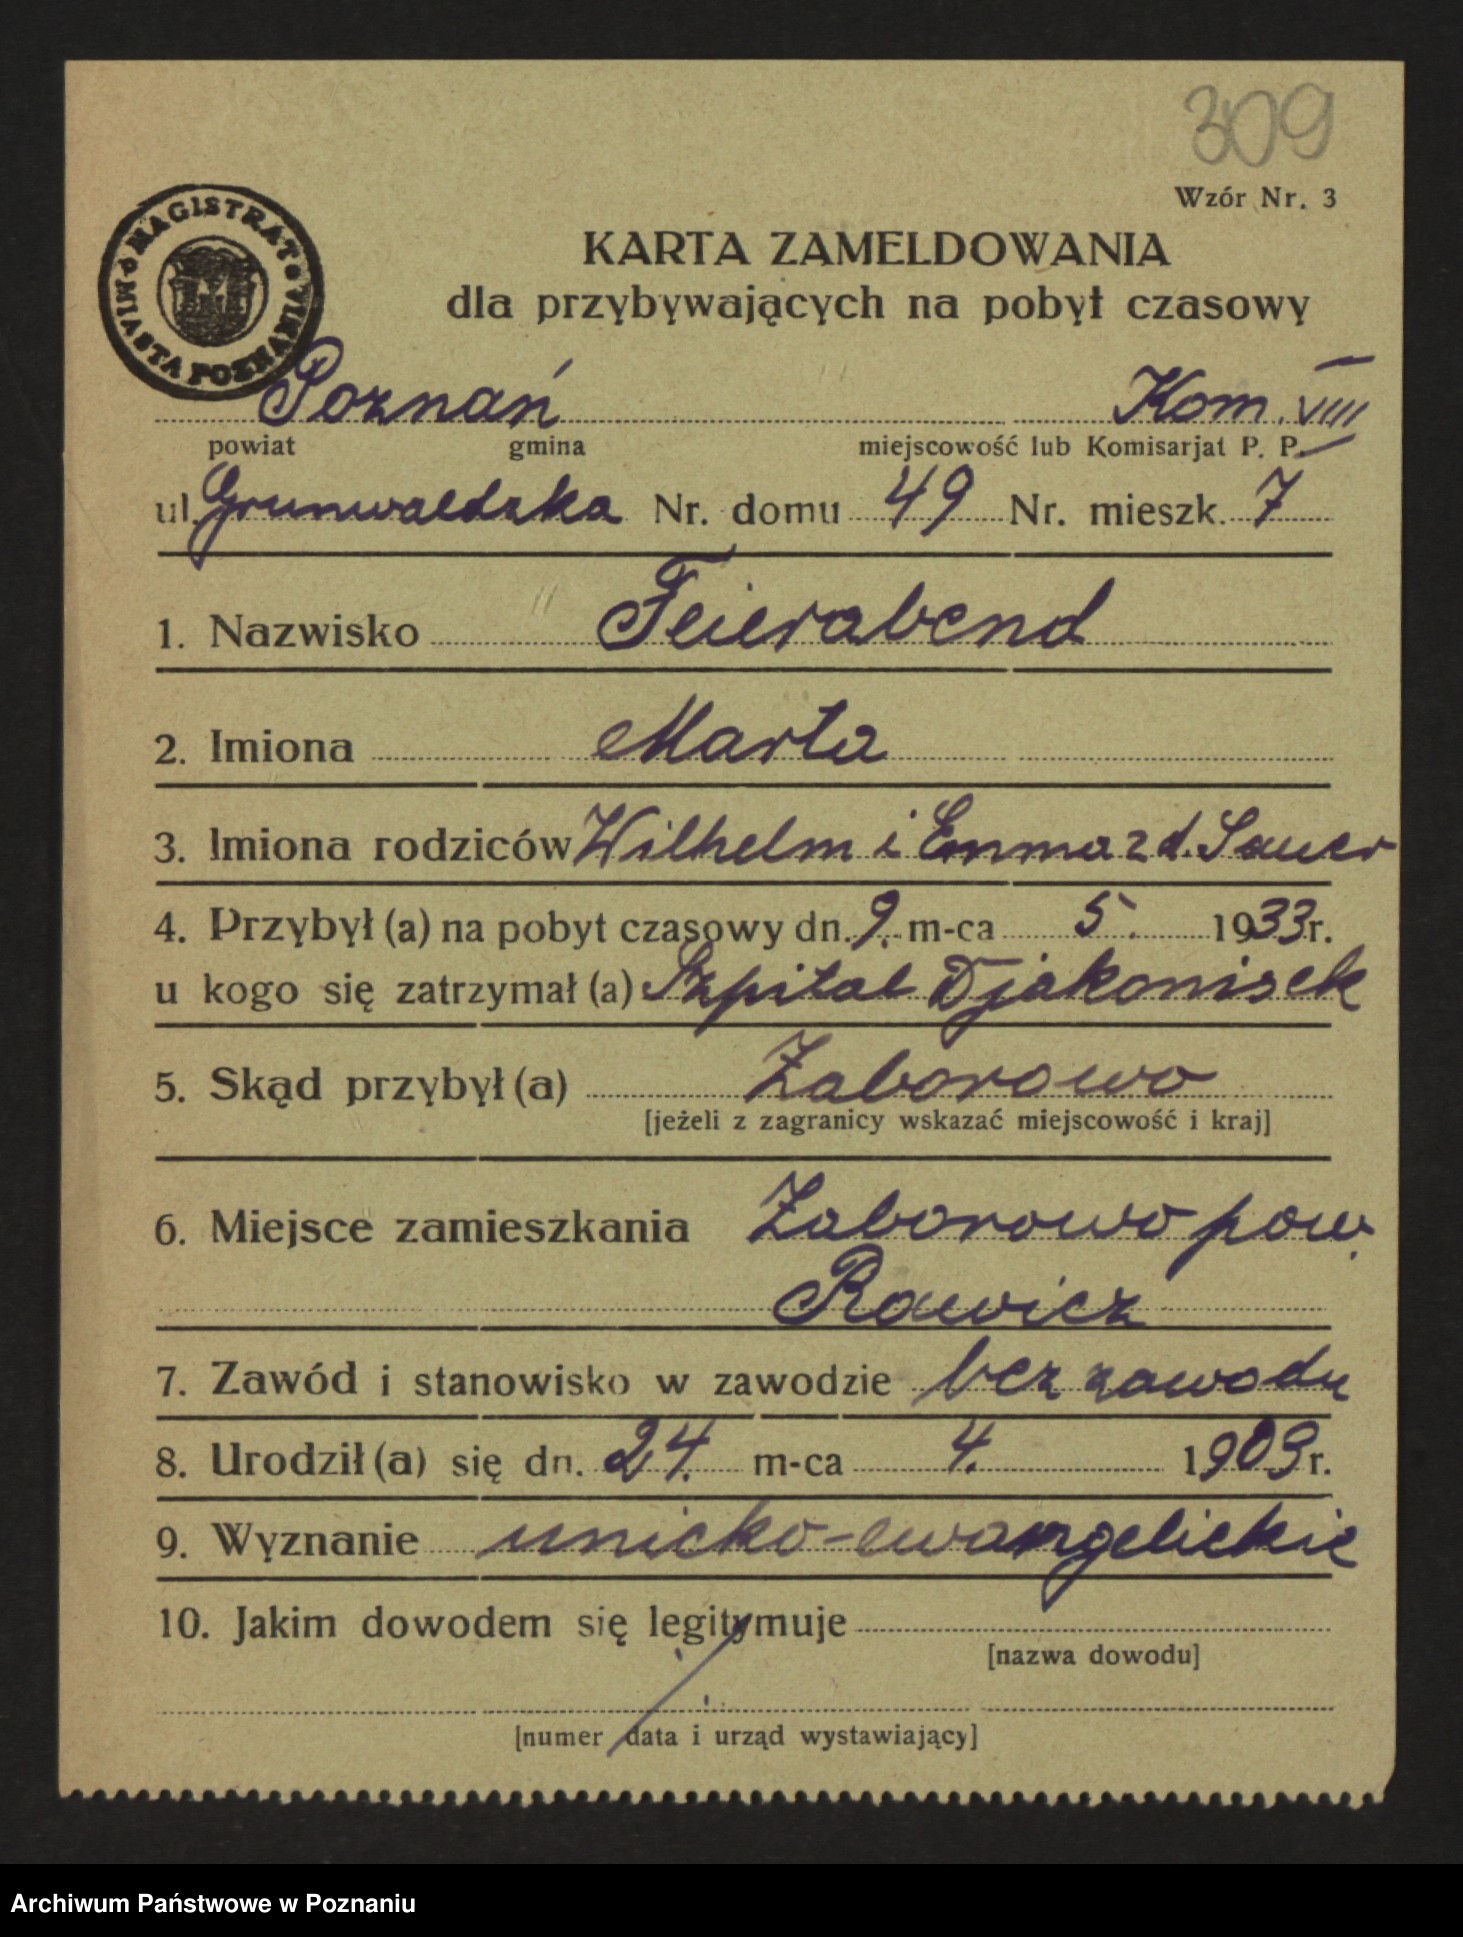 309
Wzór Nr. 3
MAGISTRAT MIASTA POZNANIA
KARTA ZAMELDOWANIA
dla przybywających na pobyt czasowy
Poznań Kom. VIII
powiat gmina miejscowość lub Komisarjat P. P.
ul. Grunwaldzka Nr. domu 49 Nr. mieszk. 7
1. Nazwisko Feierabend
2. Imiona Marta
3. Imiona rodziców Wilhelm i Emma z d. Sauer
4. Przybył (a) na pobyt czasowy dn. 9. m-ca 5. 1933 r.
u kogo się zatrzymał (a) Szpital Djakonisek
5. Skąd przybył (a) Zaborowo
[jeżeli z zagranicy wskazać miejscowość i kraj]
6. Miejsce zamieszkania Zaborowo pow.
Rawicz
7. Zawód i stanowisko w zawodzie bez zawodu
8. Urodził (a) się dn. 24. m-ca 4. 1909 r.
9. Wyznanie unicko-ewangelickie
10. Jakim dowodem się legitymuje
[nazwa dowodu]
[numer data i urząd wystawiający]
Archiwum Państwowe w Poznaniu